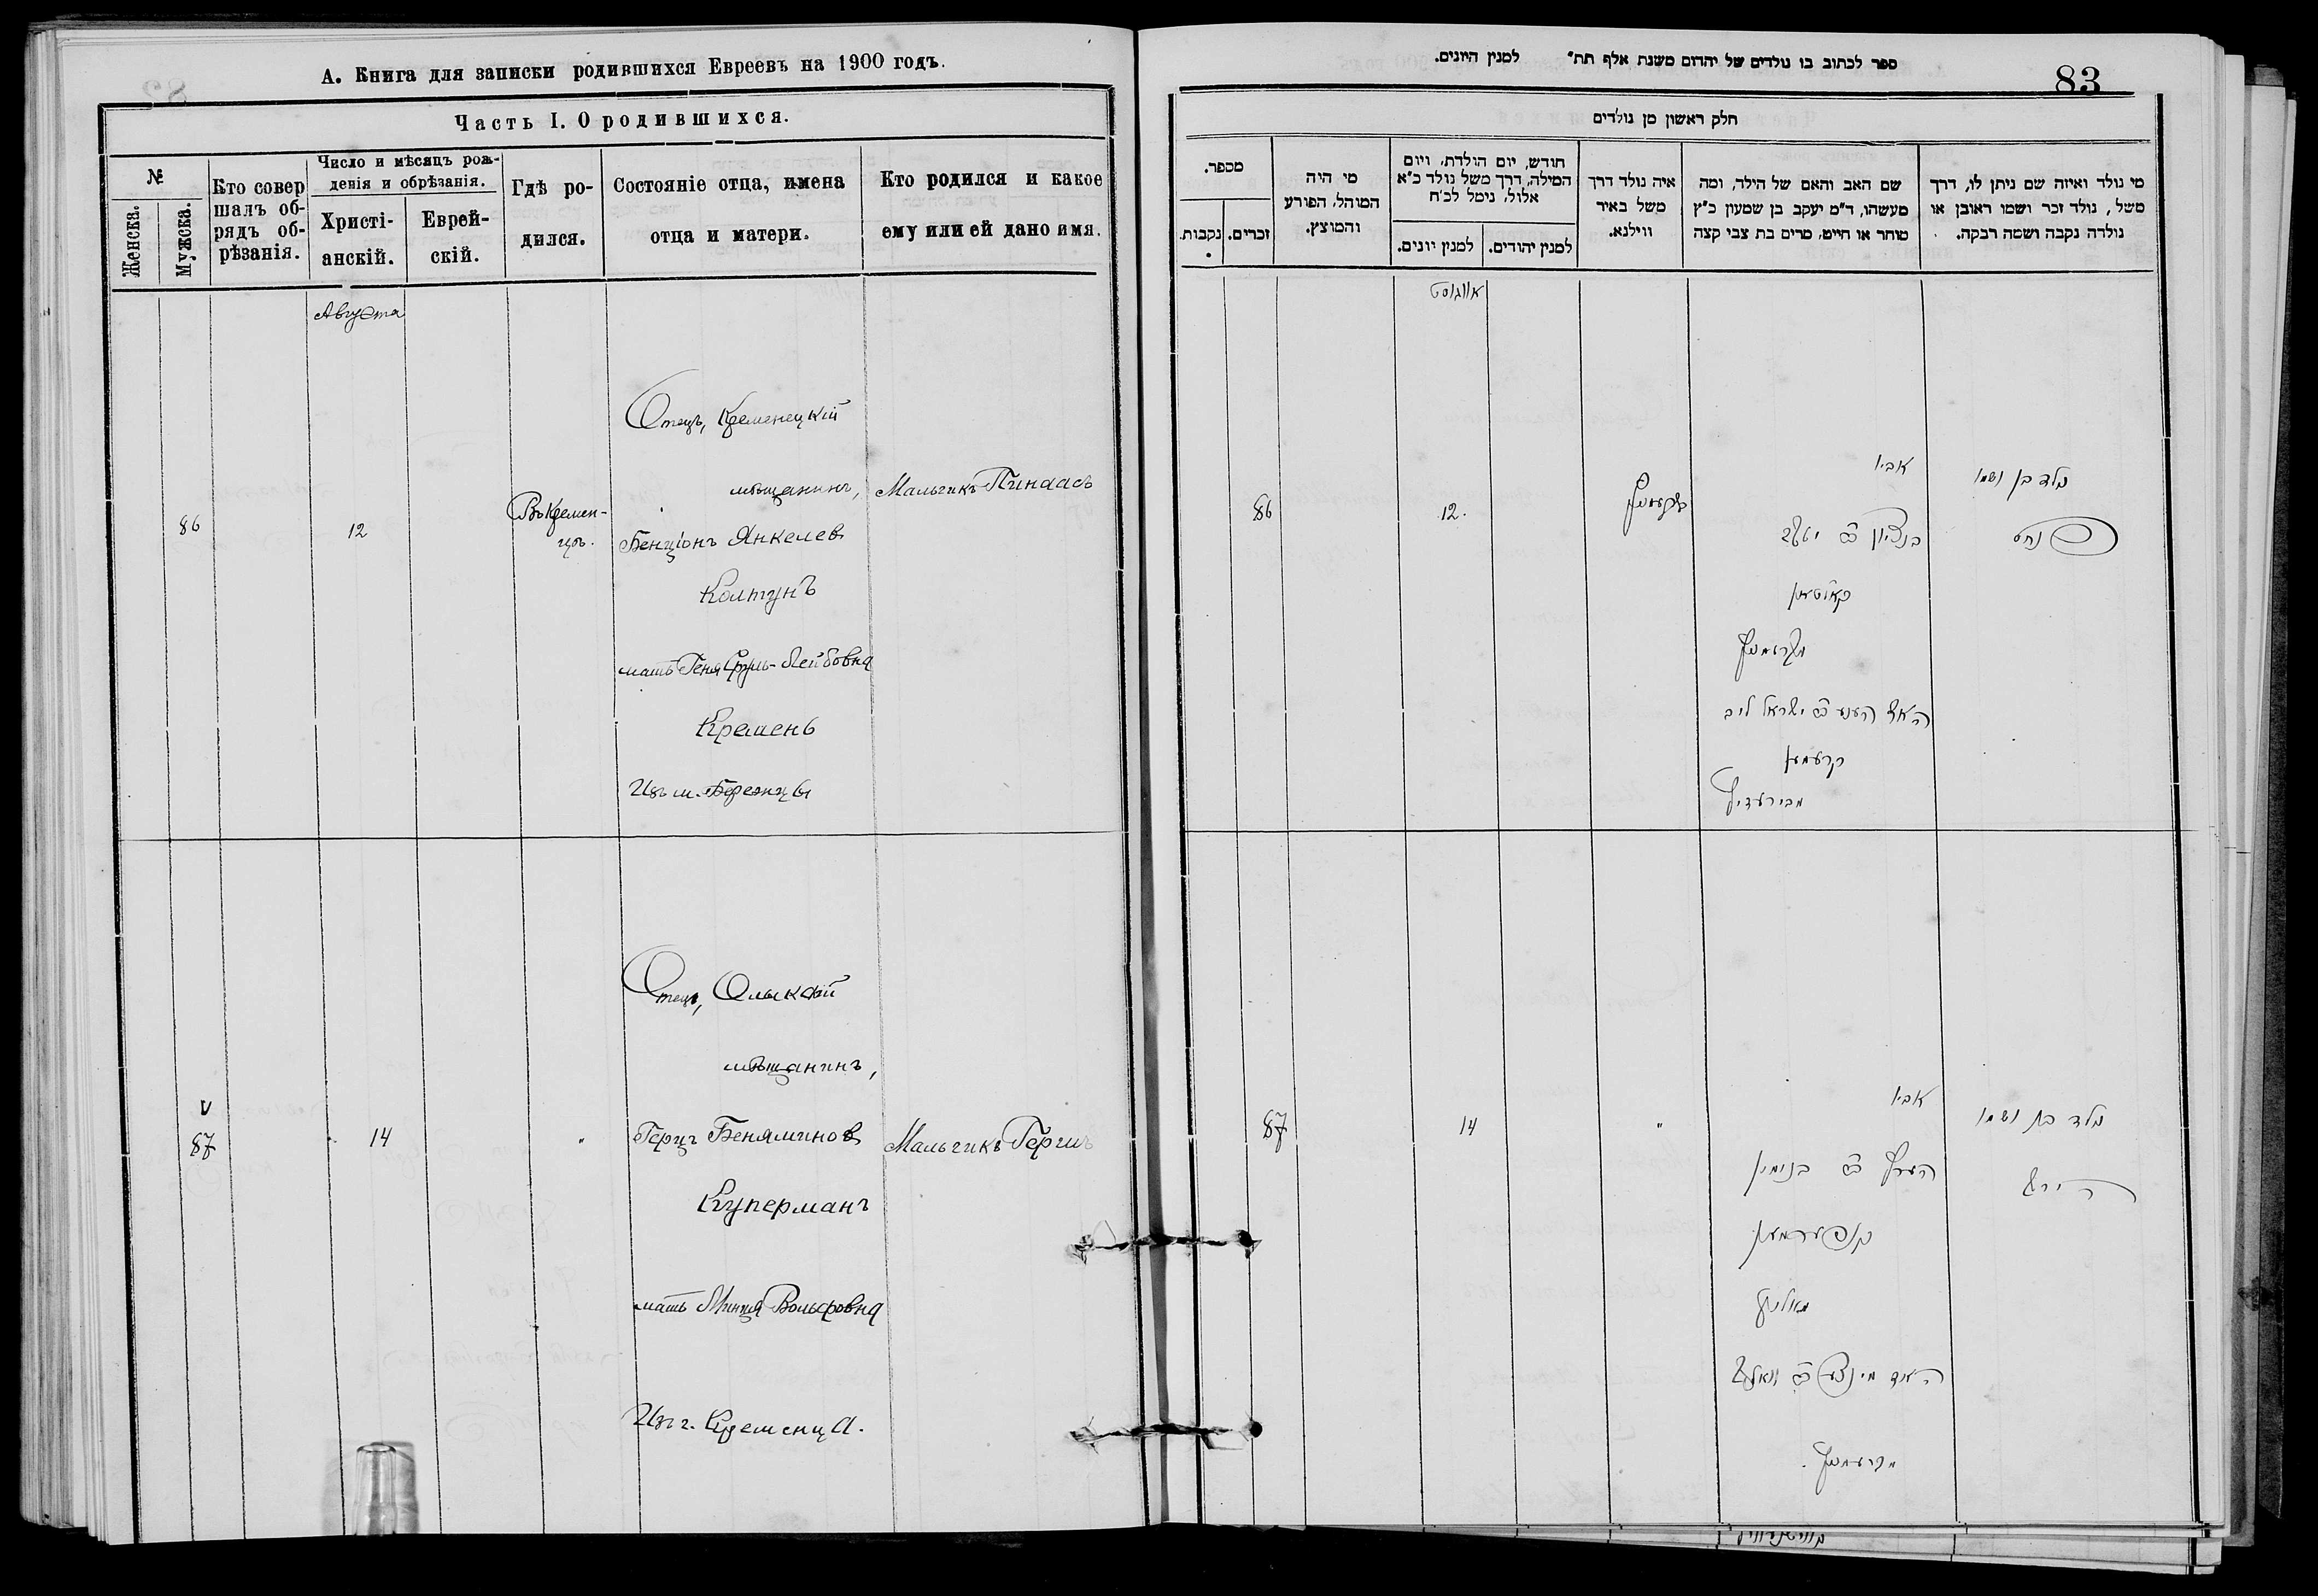 А. Книга для записки родившихся Евреевъ на 1900 годъ.
Часть I. О родившихся.
№
Женска.
Мужска.
Кто совер
шалъ об-
рядъ об-
рѣзанія.
Число и мѣсяцъ рож-
денія и обрѣзанія.
Христі-
анскій.
Еврей-
скій.
Гдѣ ро-
дился.
Состояніе отца, имена
отца и матери.
Кто родился и какое
ему или ей дано имя.
Августа
86
12
Въ Кремен-
цѣ.
Отецъ, Кременецкій
мѣщанинъ,
Бенціонъ Янкелев
Колтунъ
мать Геня Сруль-Лейбовна
Кремень
Изъ м. Бережцы
Мальчикъ Пинхасъ
87
14
"
Отецъ, Олыкскій
мѣщанинъ,
Герцъ Беняминов
Куперманъ
мать Минця Вольфовна
Изъ г. Кременца.
Мальчикъ Гершъ
ספר לכתוב בו נולדים של יהדום משנת אלף תת״ למנין היונים.
83
חלק ראשון מן נולדים
מספר.
נקבות.
זכרים.
מי היה
המוהל, הפורע
והמוצץ.
חודש, יום הולדת, ויום
המילה, דרך משל נולד כ״א
אלול, נימל לכ״ח
למנין יונים.
למנין יהודים.
איה נולד דרך
משל באיר
ווילנא.
שם האב והאם של הילד, ומה
מעשהו, ד״מ יעקב בן שמעון כ״ץ
סוחר או חייט, מרים בת צבי קצה
מי נולד ואיזה שם ניתן לו, דרך
משל, נולד זכר ושמו ראובן או
נולדה נקבה ושמה רבקה.
אווגוסט
86
12.
אביו
בנציון
קרעמען
נולד בן ושמו
פנחס
87
14
"
אביו
הערץ ב״ר בנימין
קופערמאן
נולד בן ושמו
הירש